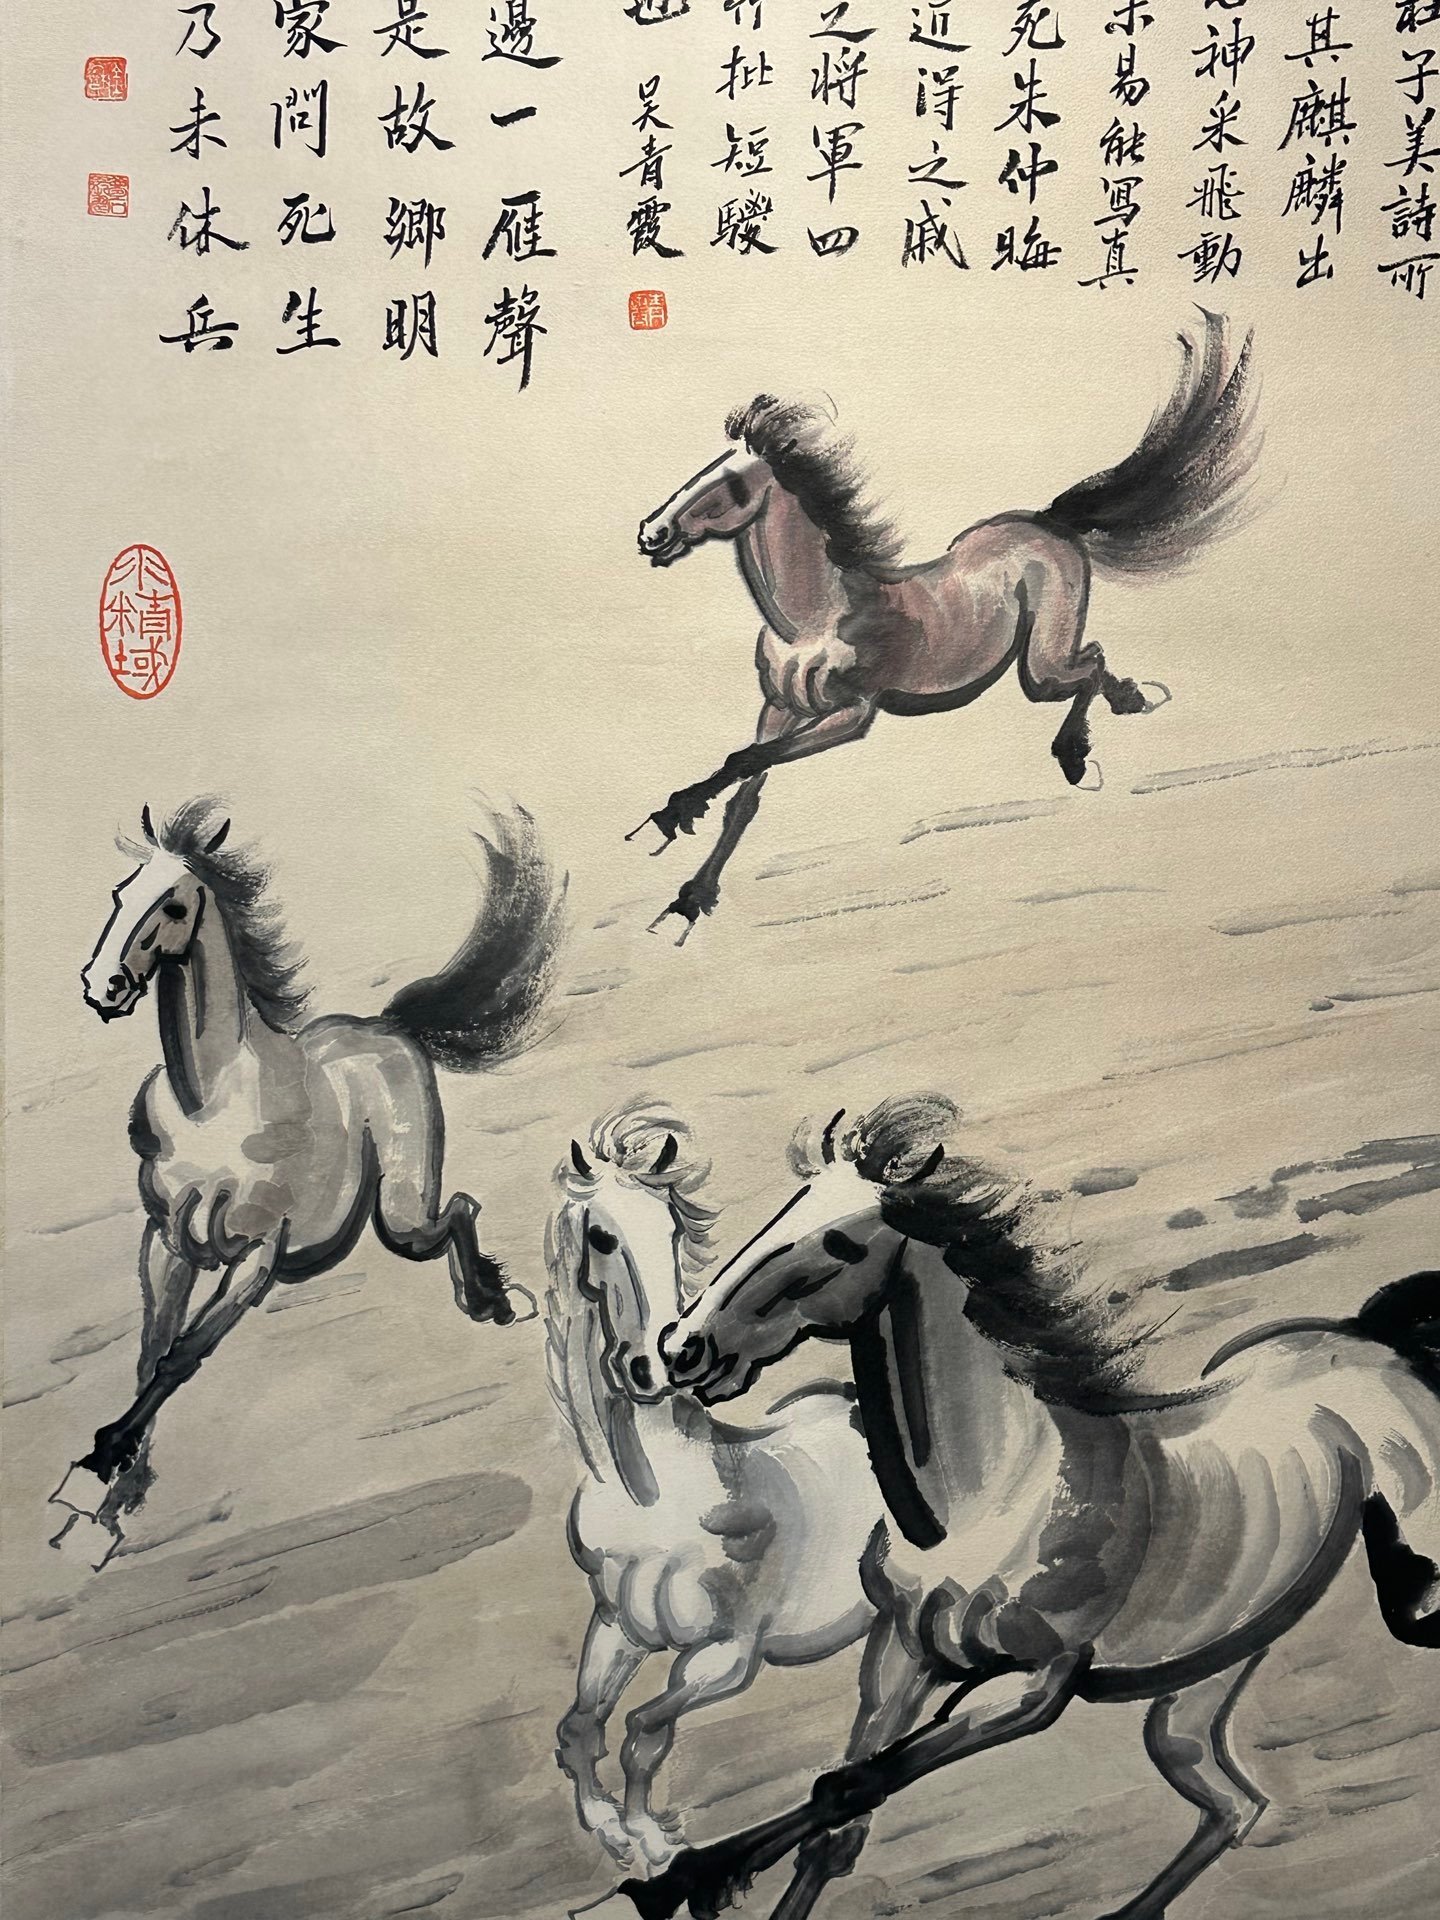 杜子美詩所
其麒麟出
神采飛動
易能寫真
死朱仲晦
近得之戚
之將軍四
批短騣
也
吳青霞
邊一雁聲
是故鄉明
家問死生
乃未休兵